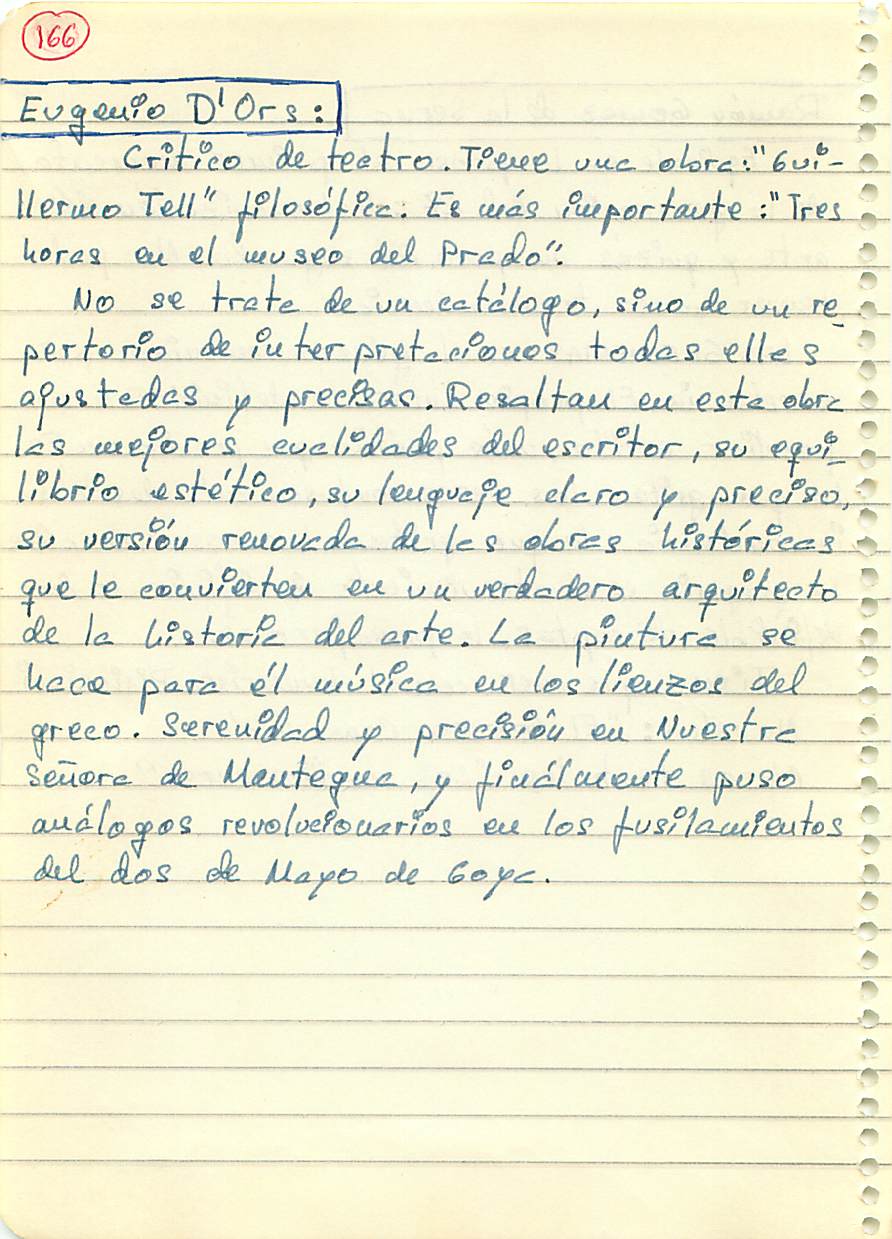 166
Eugenio D'Ors:
Crítico de teatro. Tiene una obra: "Gui-
llermo Tell" filosófica. Es más importante: "Tres
horas en el museo del Prado".
No se trata de un catálogo, sino de un re_
pertorio de interpretaciones todas ellas
ajustadas y precisas. Resaltan en esta obra
las mejores cualidades del escritor, su equi_
librio estético, su lenguaje claro y preciso,
su versión renovada de las obras históricas
que le convierten en un verdadero arquitecto
de la historia del arte. La pintura se
hace para él música en los lienzos del
greco. Serenidad y precisión en Nuestra
Señora de Mantegna, y finálmente puso
análogos revolucionarios en los fusilamientos
del dos de Mayo de Goya.